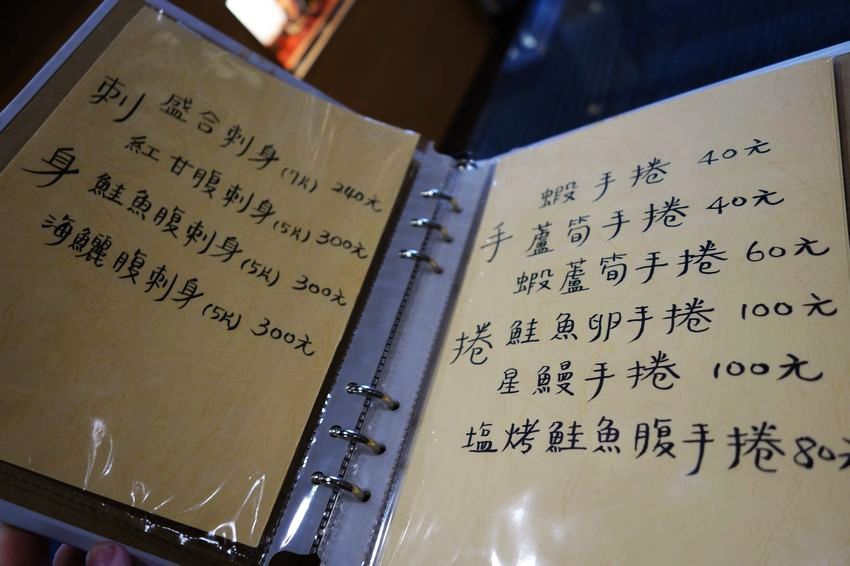 刺身
盛合刺身(7片) 240元
紅甘腹刺身(5片) 300元
鮭魚腹刺身(5片) 300元
海鱺腹刺身(5片) 300元
手捲
蝦手捲 40元
蘆筍手捲 40元
蝦蘆筍手捲 60元
鮭魚卵手捲 100元
星鰻手捲 100元
塩烤鮭魚腹手捲 80元